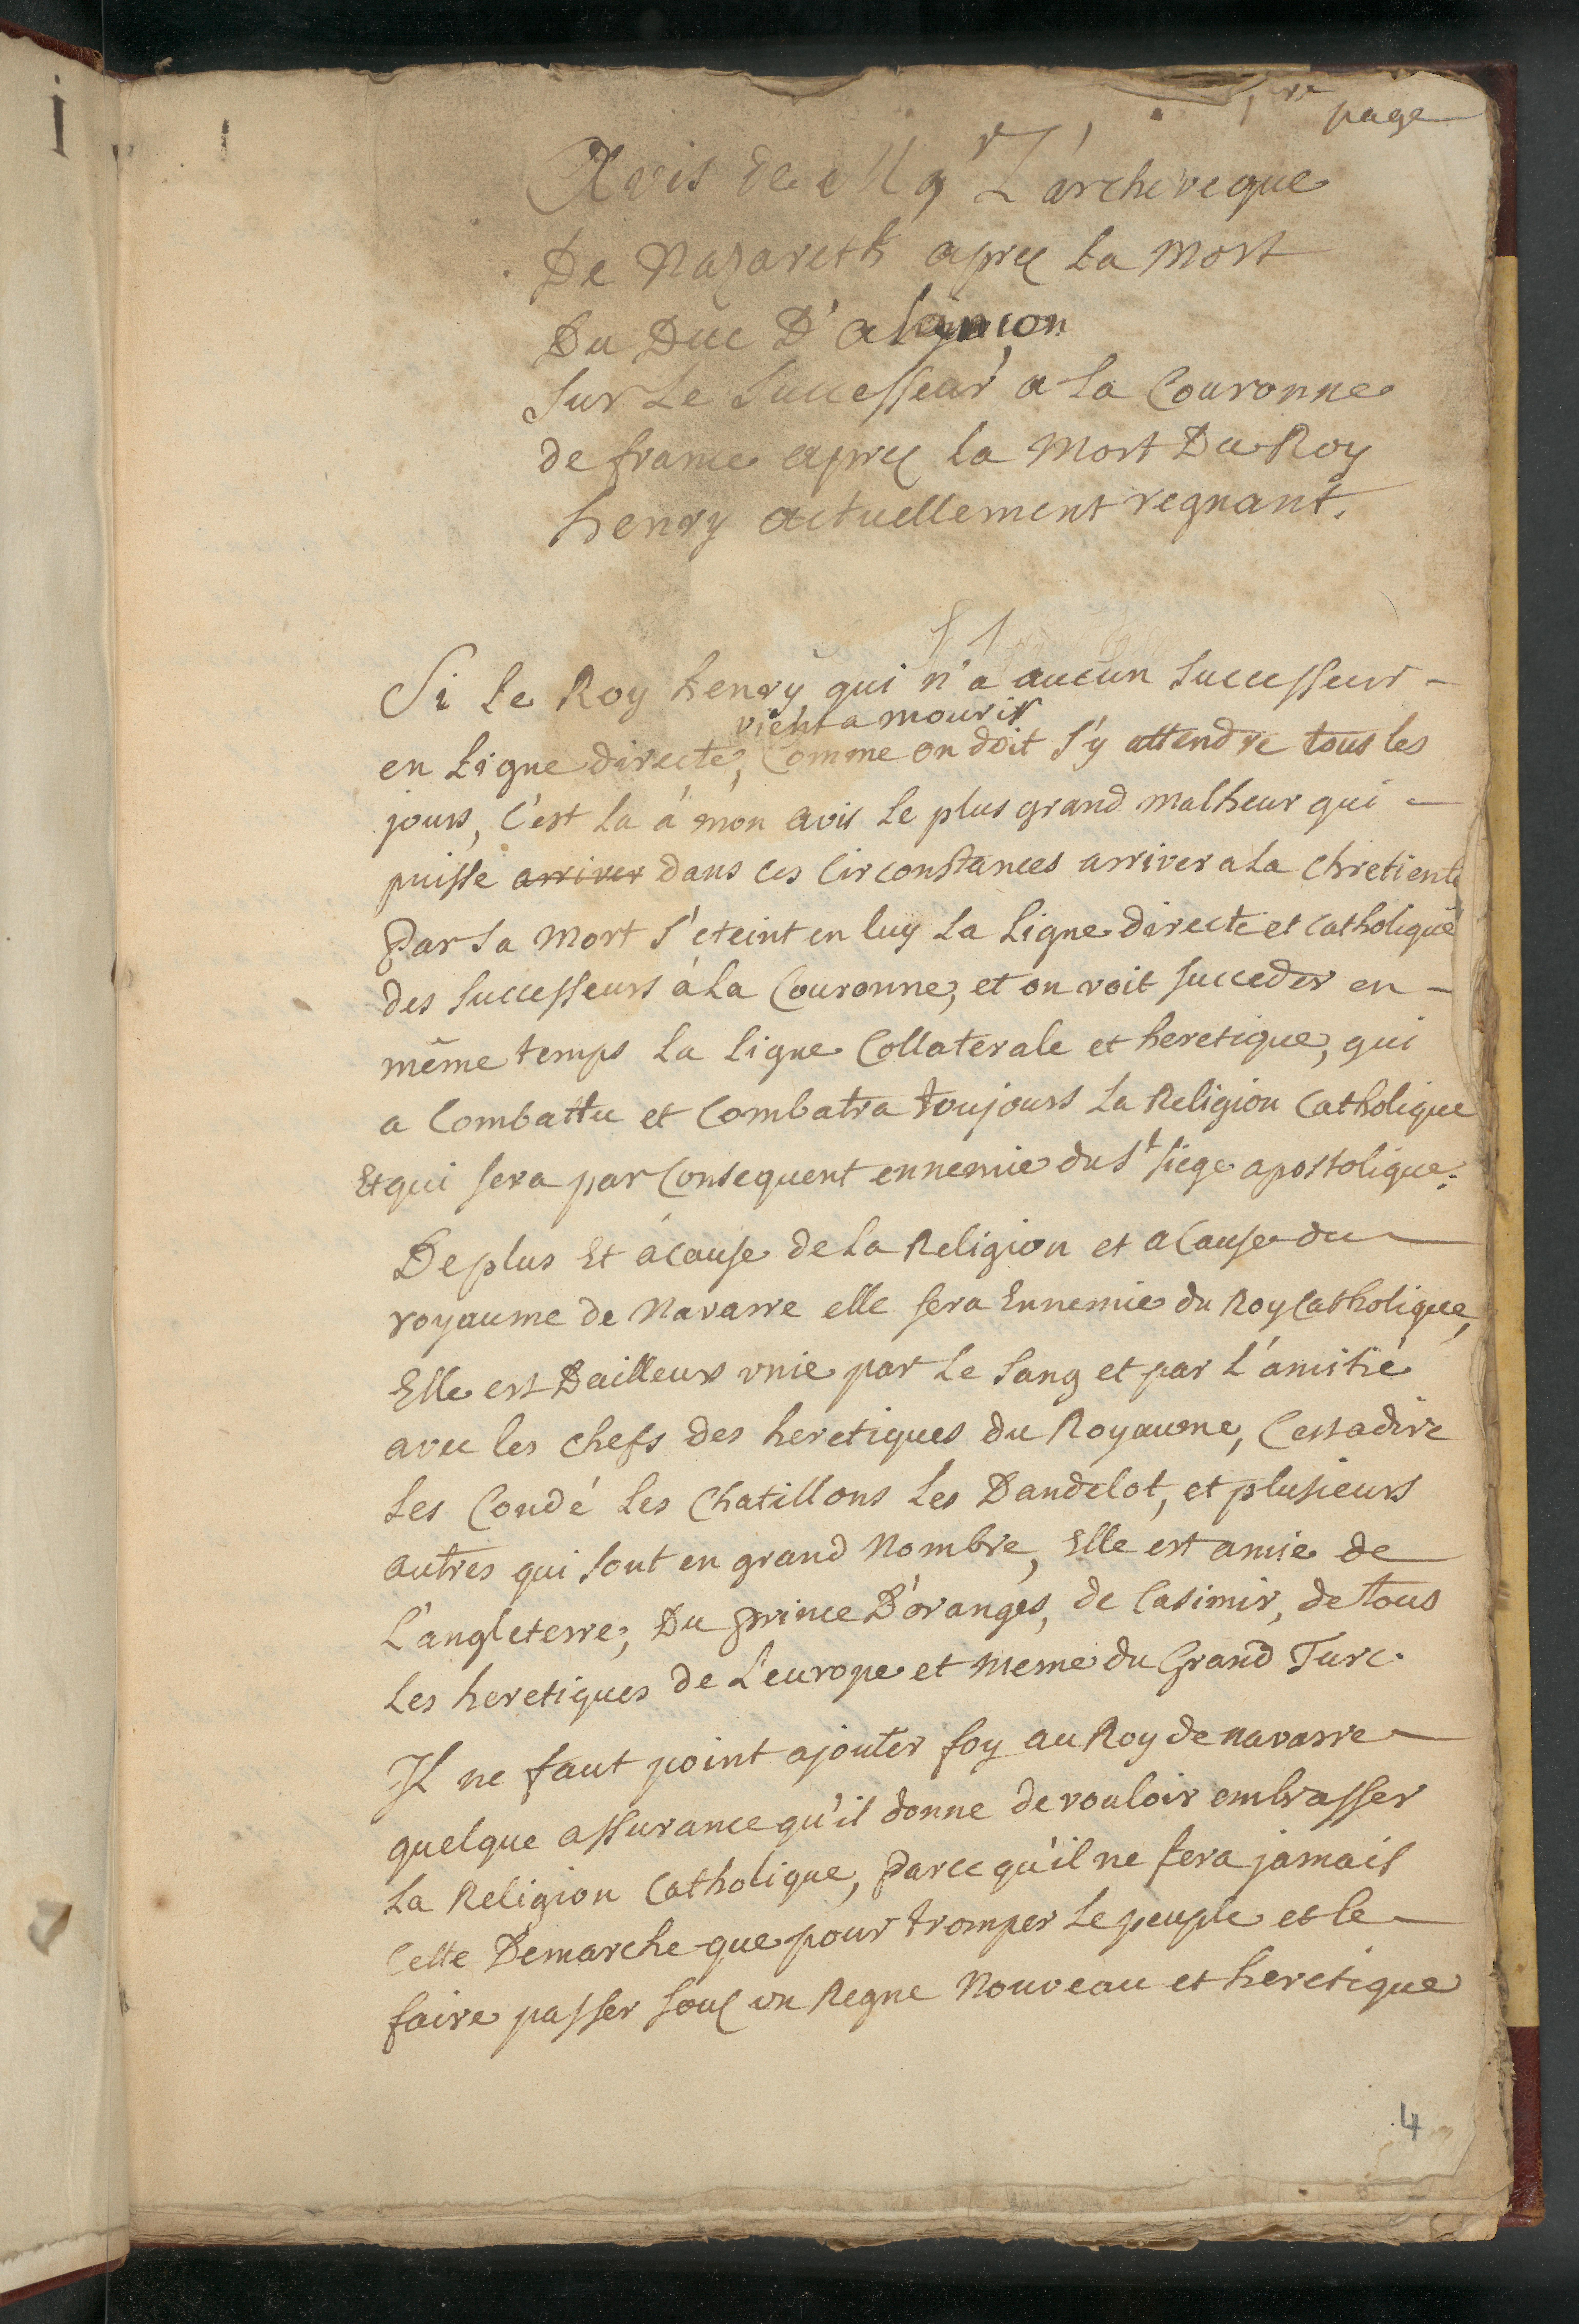 1re page
Avis de Mgr L'archeveque
De Nazareth aprés La Mort
Du Duc D'alançon
Sur Le Successeur a La Couronne
de france aprés La Mort Du Roy
henry actuellement regnant.
Si Le Roy henry qui n'a aucun Successeur -
vient a mourir
en Ligne directe, Comme on doit s'y attendre tous les
jours, C'est La á mon avis Le plus grand malheur qui -
puisse arriver dans ces Circonstances arriver a La Chretienté
Par Sa Mort s'eteint en luy La Ligne directe et Catholique
des Successeurs à La Couronne, et on voit Succeder en -
même temps La Ligne Collaterale et heretique, qui
a Combattu et Combatra toujours La Religion Catholique
Et qui Sera par Consequent ennemie du St Siege apostolique.
De plus Et àcause de La Religion et acause du
royaume de Navarre elle Sera Ennemie du Roy Catholique,
Elle est Dailleurs vnie par Le Sang et par L'amitié
avec les chefs des heretiques du Royaume, Cestadire
Les Condé Les Chatillons Les Dandelot, et plusieurs
autres qui Sont en grand Nombre, Elle est amie de
L'angleterre, Du prince D'oranges, de Casimir, de tous
Les heretiques de L'europe et meme du Grand Turc.
Il ne faut point ajouter foy au Roy de navarre -
quelque assurance qu'il donne de vouloir embrasser
La Religion Catholique, Parce qu'il ne fera jamais
Cette Demarche que pour tromper Le peuple et le -
faire passer Sous un Regne Nouveau et heretique
4